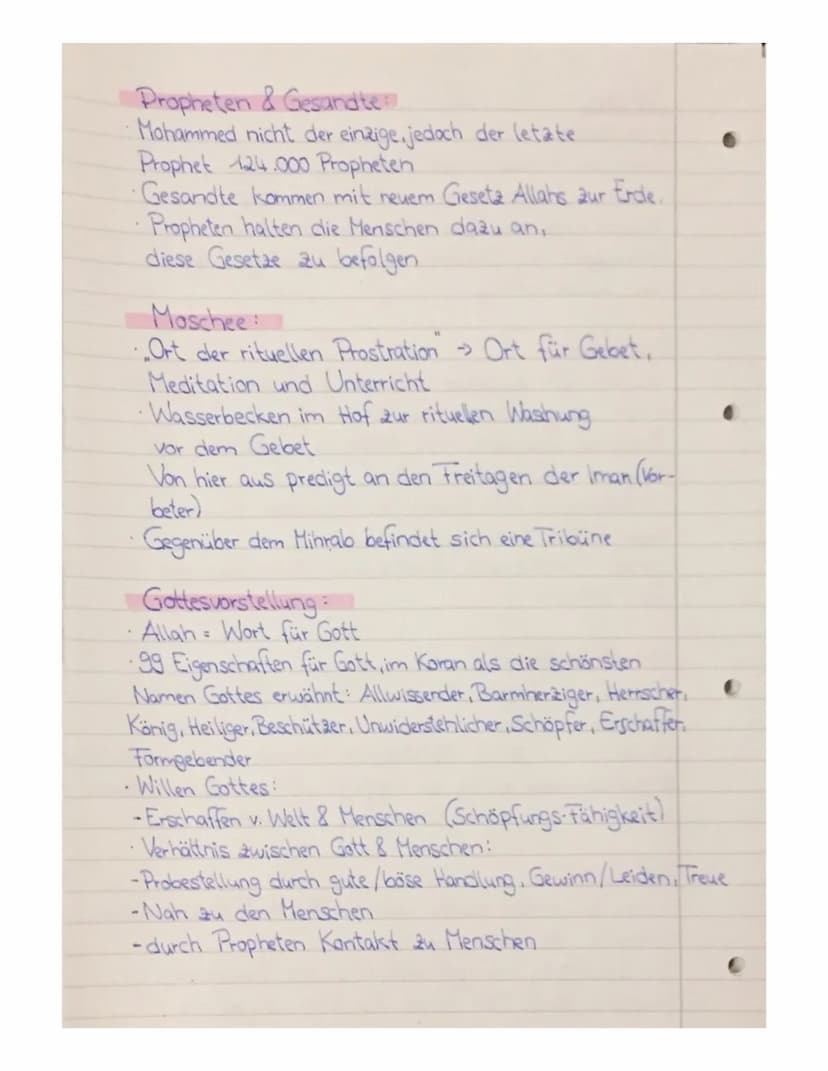 Propheten & Gesandte:
· Mohammed nicht der einzige, jedoch der letzte
Prophet 124.000 Propheten
· Gesandte kommen mit neuem Gesetz Allahs zur Erde.
· Propheten halten die Menschen dazu an,
diese Gesetze zu befolgen
Moschee:
· „Ort der rituellen Prostration" → Ort für Gebet,
Meditation und Unterricht
· Wasserbecken im Hof zur rituellen Washung
vor dem Gebet
Von hier aus predigt an den Freitagen der Iman (Vor-
beter)
· Gegenüber dem Mihrab befindet sich eine Tribüne
Gottesvorstellung:
· Allah = Wort für Gott
· 99 Eigenschaften für Gott, im Koran als die schönsten
Namen Gottes erwähnt: Allwissender, Barmherziger, Herrscher,
König, Heiliger, Beschützer, Unwiderstehlicher, Schöpfer, Erschaffer,
Formgebender
· Willen Gottes:
- Erschaffen v. Welt & Menschen (Schöpfungs-Fähigkeit)
· Verhältnis zwischen Gott & Menschen:
- Probestellung durch gute/böse Handlung, Gewinn/Leiden, Treue
- Nah zu den Menschen
- durch Propheten Kontakt zu Menschen